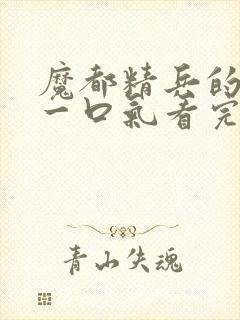 魔都精兵的
一口氣看完
青山失魂